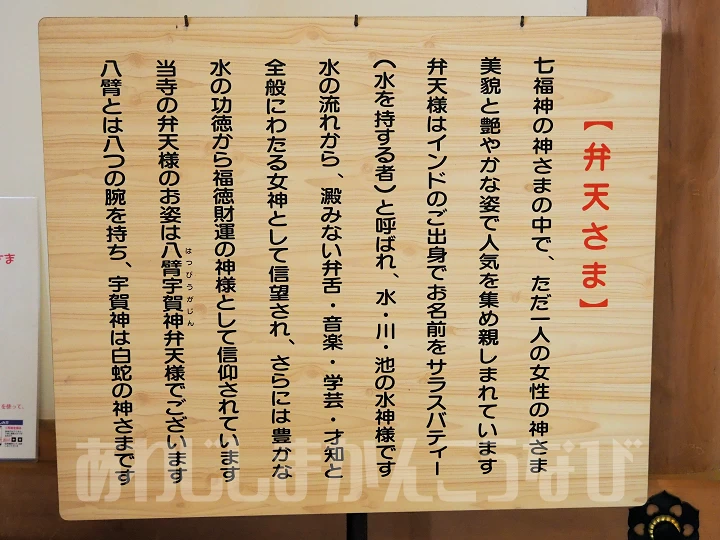 【弁天さま】
七福神の神さまの中で、ただ一人の女性の神さま
美貌と艶やかな姿で人気を集め親しまれています
弁天様はインドのご出身でお名前をサラスバティー
(水を持する者)と呼ばれ、水・川・池の水神様です
水の流れから、澱みない弁舌・音楽・学芸・才知と
全般にわたる女神として信望され、さらには豊かな
水の功徳から福徳財運の神様として信仰されています
当寺の弁天様のお姿は八臂宇賀神弁天様でございます
はっぴうがじん
八臂とは八つの腕を持ち、宇賀神は白蛇の神さまです
あわじしまかんこうなび